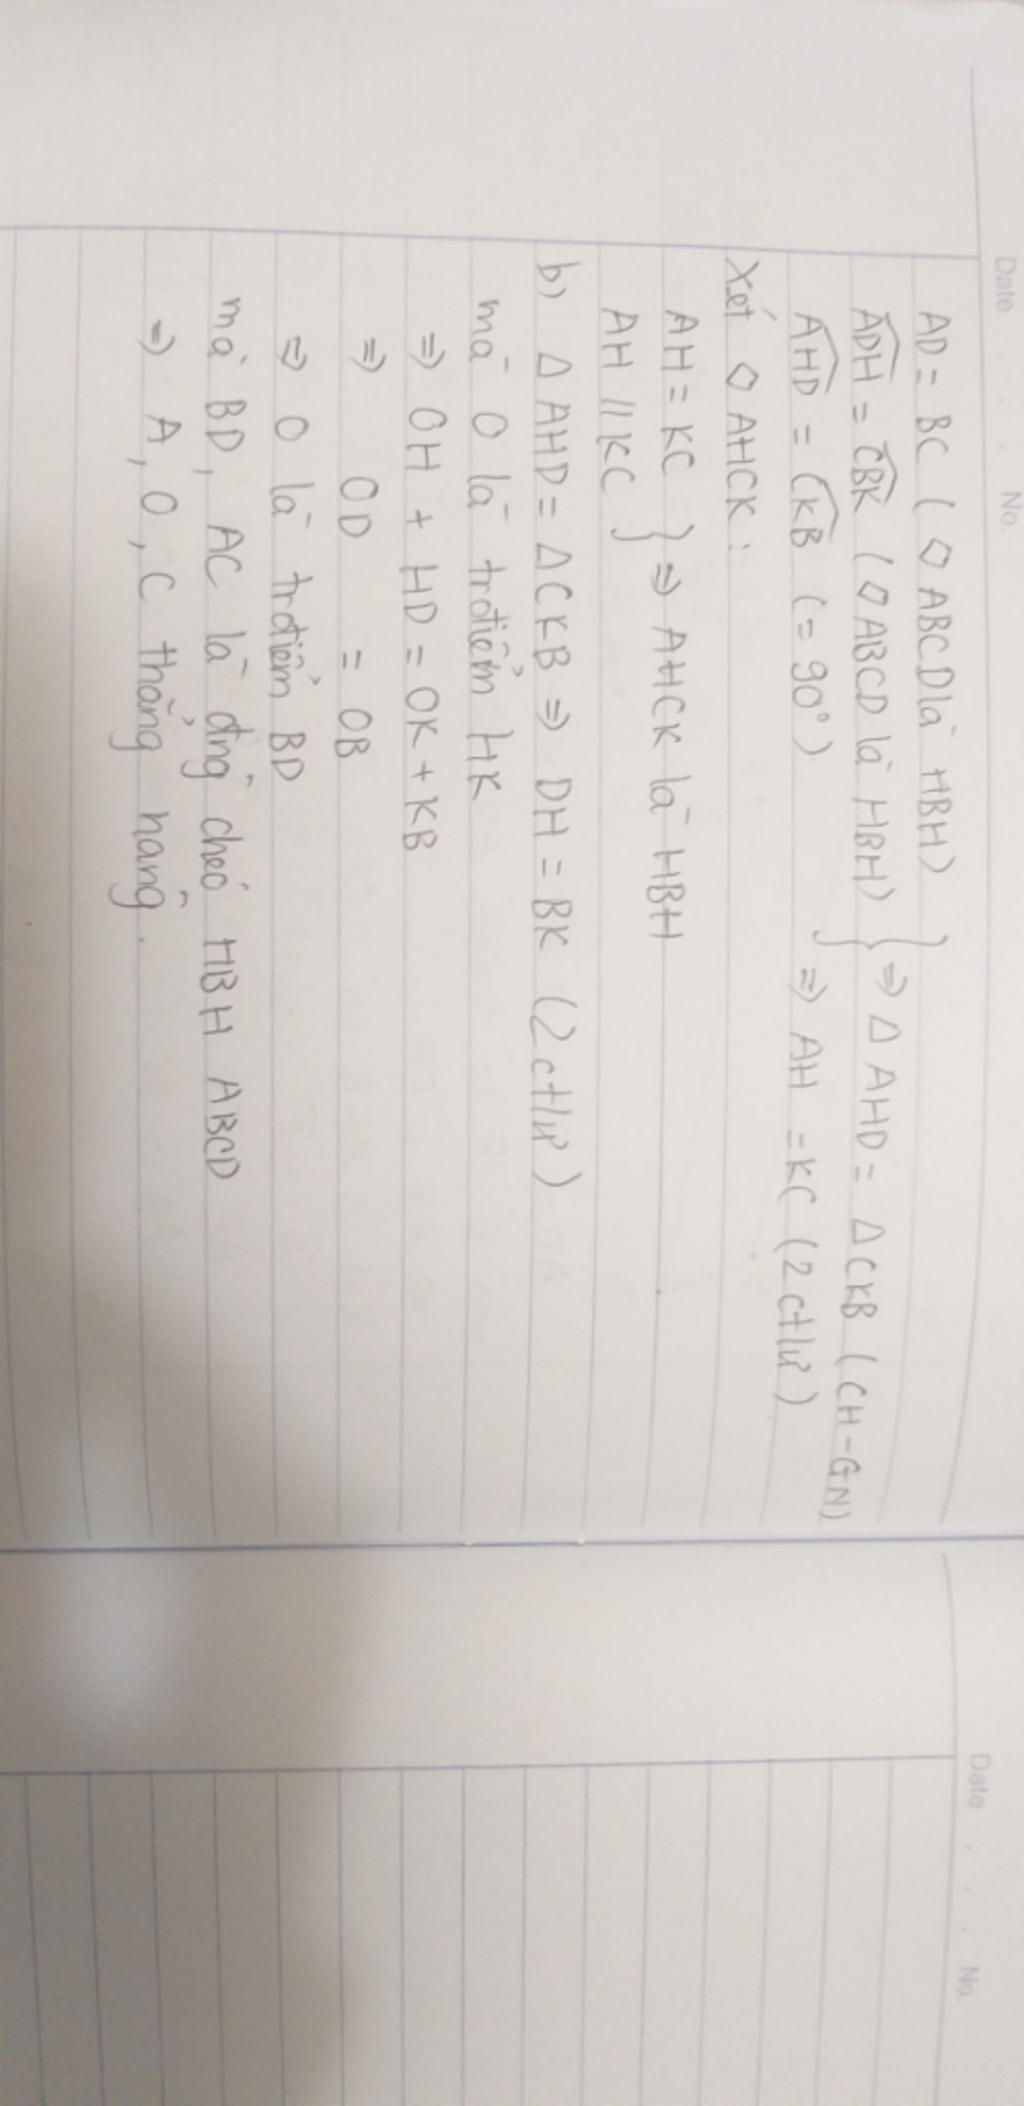 Date . . . No.
AD = BC (◇ ABCD là HBH)
ADH = CBK (◇ ABCD là HBH) } ⇒ Δ AHD = Δ CKB (CH-GN)
AHD = CKB (= 90°) ⇒ AH = KC (2 ctứ)
Xét ◇ AHCK :
AH = KC } ⇒ AHCK là HBH
AH // KC
b) Δ AHD = Δ CKB ⇒ DH = BK (2 ctứ)
mà O là trđiểm HK
⇒ OH + HD = OK + KB
⇒ OD = OB
⇒ O là trđiểm BD
mà BD, AC là đng chéo HBH ABCD
⇒ A, O, C thẳng hàng.
Date . . . No.